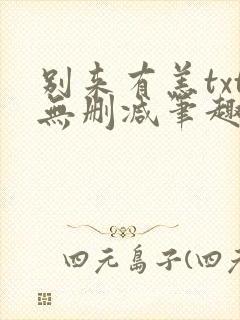 别来有恙txt
無删减笔趣
四元島子(四元